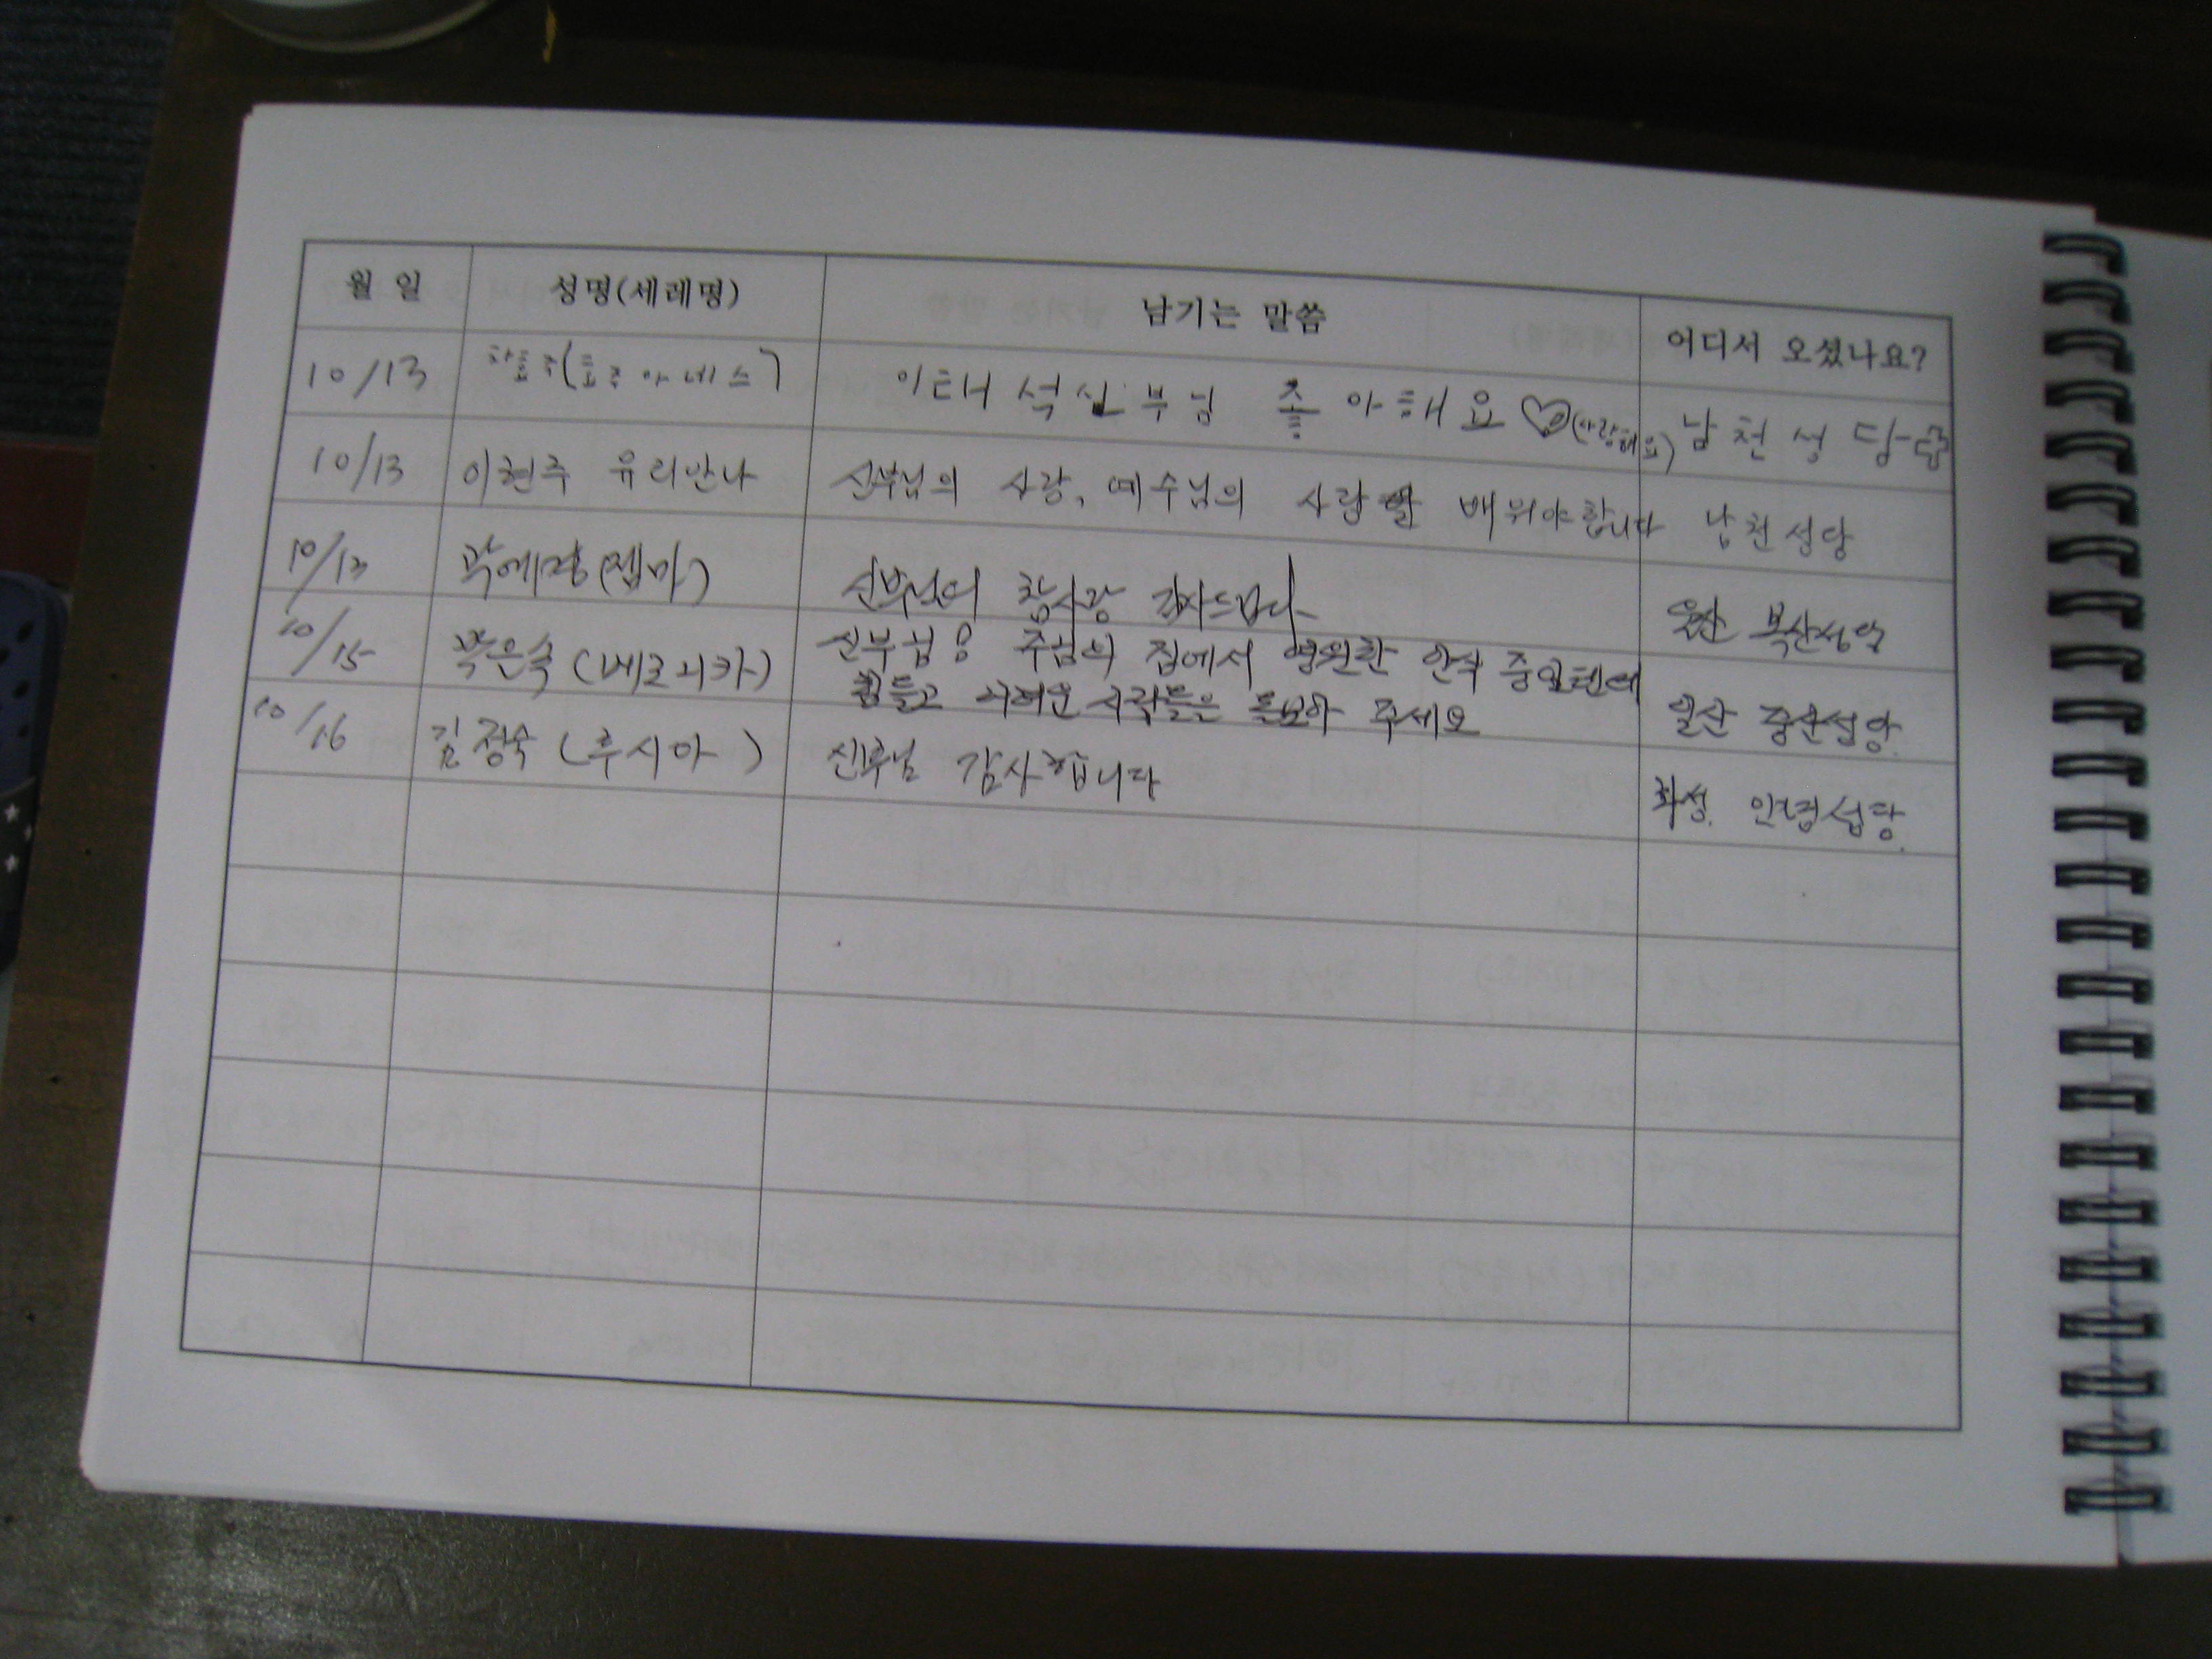 월 일 성명(세레명) 남기는 말씀 어디서 오셨나요?
10/13 이태석신부님 좋아해요 (사랑해요) 남천성당
10/13 이현주 유리안나 신부님의 사랑, 예수님의 사랑 배워야합니다 남천성당
10/13 곽예경(젬마) 신부님의 참사랑 감사드립니다 울산 복산성당
10/15 박은숙(베로니카) 신부님! 주님의 집에서 영원한 안식 중일텐데
힘들고 어려운 사람들을 돌보아 주세요 일산 중산성당.
10/16 김정숙(루시아) 신부님 감사합니다 화성. 안녕성당.